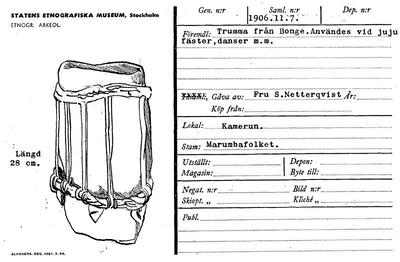 STATENS ETNOGRAFISKA MUSEUM, Stockholm
ETNOGR. ARKEOL.
Längd
28 cm.
Gen. n:r Saml. n:r Dep. n:r
1906.11.7.
Föremål: Trumma från Bonge.Användes vid juju
fäster,danser m.m.
Gåva av: Fru S.Netterqvist År:
Köp från:
Lokal: Kamerun.
Stam: Marumbafolket.
Utställt: Depon:
Magasin: Byte till:
Negat. n:r Bild n:r
Skiopt. „ Kliché „
Publ.